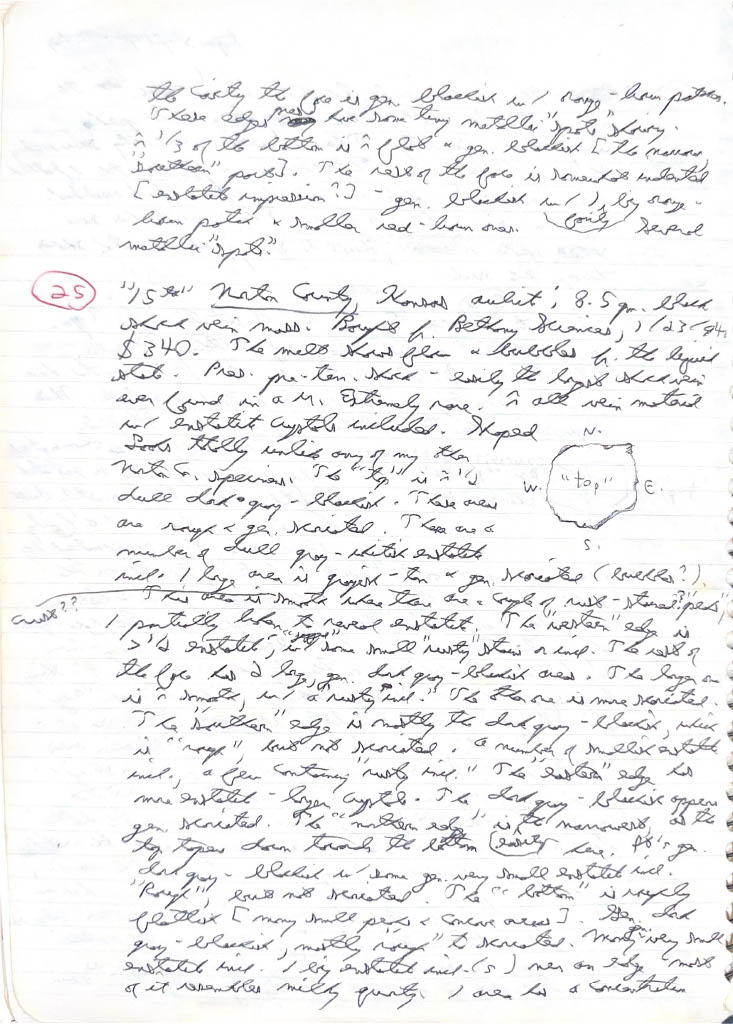 the cavity the face is gen. blackish w/ orange-brown patches.
These edges have some tiny metallic "spots" showing.
1/3 of the bottom is flat & gen. blackish [the narrow,
"southern" part]. The rest of the face is somewhat indented
[enstatite impression?] - gen. blackish w/ 1 big orange-
brown patch & smaller red-brown ones. Several
cavity
metallic "spots."
25
"15th" Norton County, Kansas aubrite; 8.5 gm. black
shock vein mass. Bought fr. Bethany Sciences, 1/23/84.
$340. The melt shows flow & bubbles fr. the liquid
state. Pres. pre-terr. shock - easily the largest shock vein
ever found in a M. Extremely rare. all vein material
w/ enstatite crystals included. Shaped
N.
Looks totally unlike any of my other
Norton Co. specimens. The "top" is
W. "top" E.
dull dark gray-blackish. These areas
are rough & gen. There are a
S.
number of dull gray-whitish enstatite
incl. 1 large area is grayish-tan & gen. (bubbles?).
crust??
This area is smooth where there are a couple of rust-stained "pers",
1 partially broken to reveal enstatite. The "western" edge is
enstatite, w/ some small "rusty" stains or incl. The rest of
the face has 2 large, gen. dark gray-blackish areas. The larger one
is smooth, w/ a "rusty incl." The other one is more
The "southern" edge is mostly the dark gray-blackish, which
is "rough", but not A number of smallish enstatite
incl., a few containing "rusty incl." The "eastern" edge has
more enstatite - larger crystals. The dark gray-blackish appears
gen. The "northern edge" is the narrowest, as the
top tapers down towards the bottom easily here. It's gen.
dark gray-blackish w/ some gen. very small enstatite incl.
"Rough", but not The "bottom" is roughly
flattish [many small & concave areas]. Gen. dark
gray-blackish, mostly "rough" to Many very small
enstatite incl. 1 big enstatite incl.(s) near an edge most
of it resembles milky quartz. 1 area has a concentration